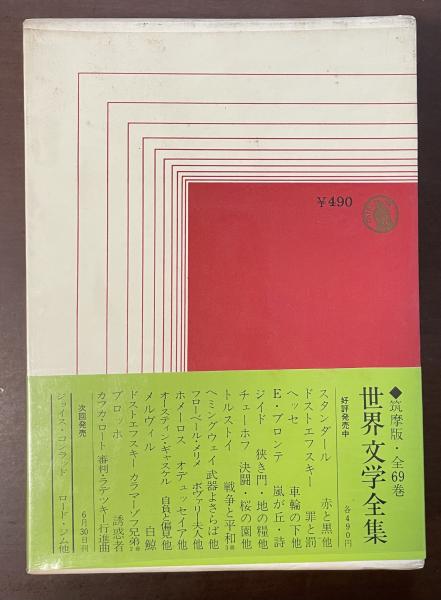 ¥490
◆筑摩版・全69巻
世界文学全集
好評発売中
各490円
スタンダール 赤と黒他
ドストエフスキー 罪と罰
ヘッセ 車輪の下他
E・ブロンテ 嵐が丘・詩
ジイド 狭き門・地の糧他
チェーホフ 決闘・桜の園他
トルストイ 戦争と平和3冊
ヘミングウェイ 武器よさらば他
フローベール・メリメ ボヴァリー夫人他
ホメーロス オデュッセイア他
オースティン・ギャスケル 自負と偏見他
メルヴィル 白鯨
ドストエフスキー カラマーゾフ兄弟2冊
ブロッホ 誘惑者
カフカ・ロート 審判・ラデツキー行進曲
次回発売 6月30日刊
ジョイス・コンラッド ロード・ジム他